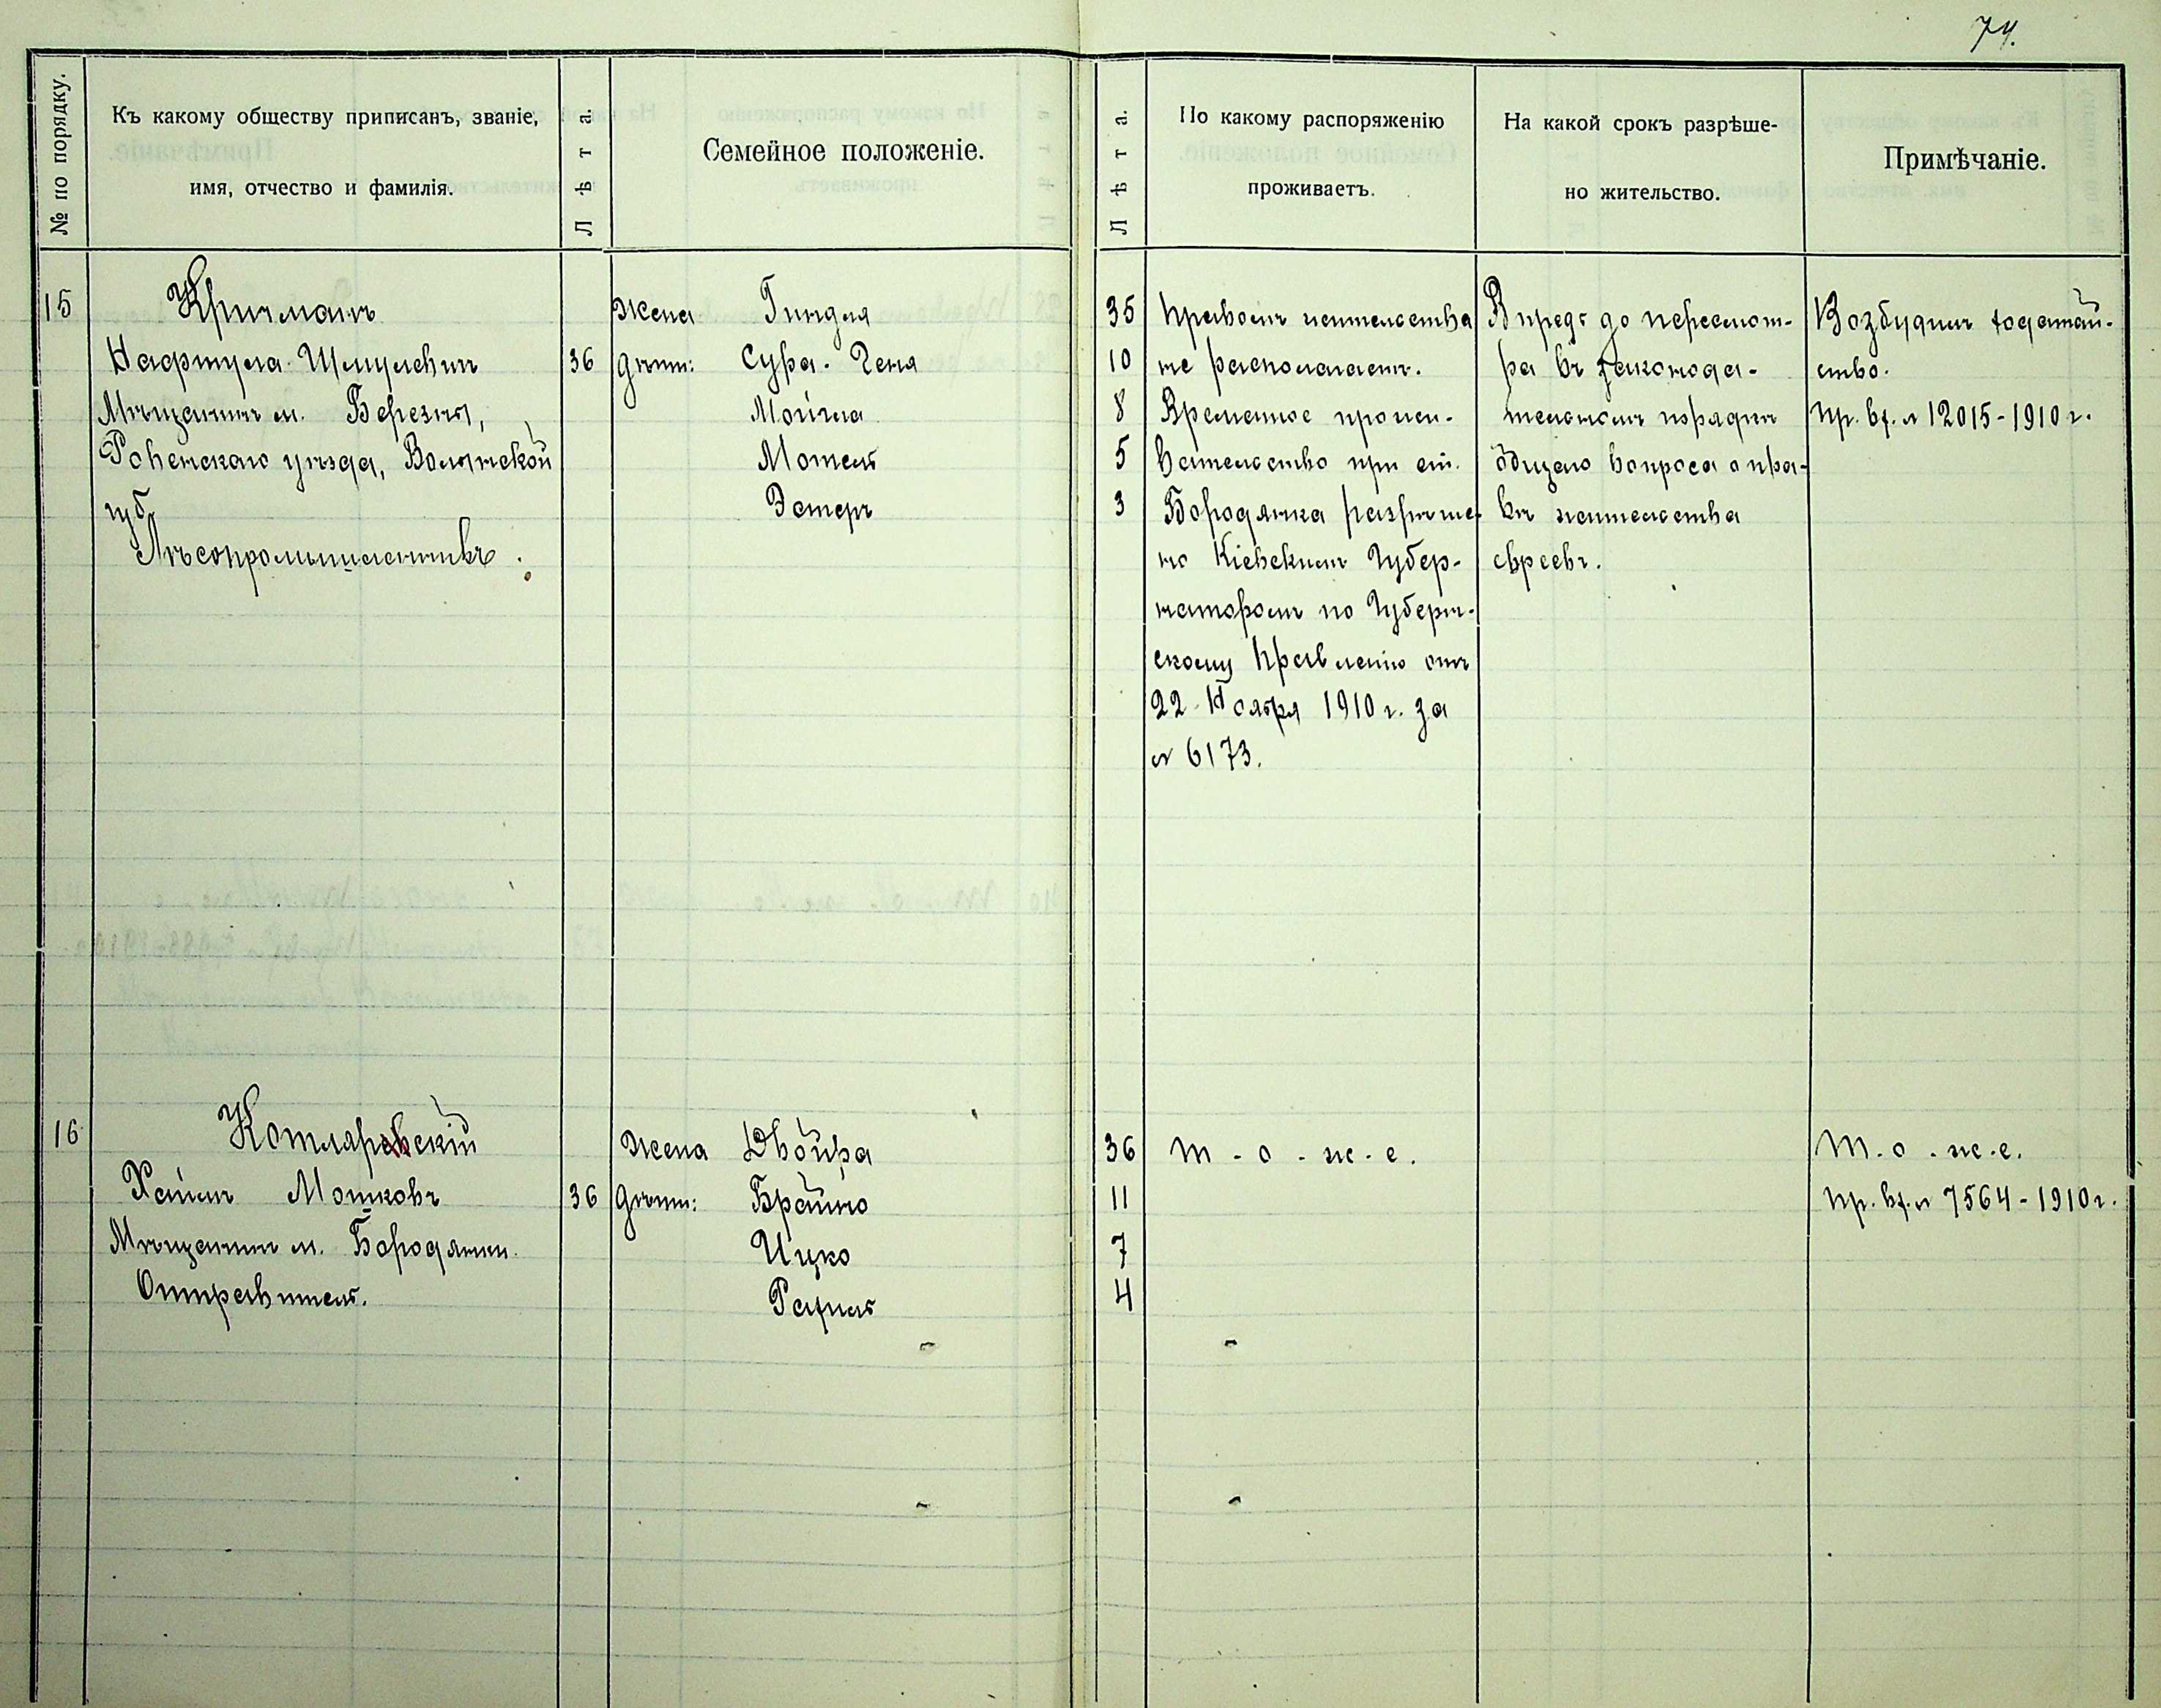 74.
№ по порядку.
Къ какому обществу приписанъ, званіе,
имя, отчество и фамилія.
Лѣта.
Семейное положеніе.
Лѣта.
По какому распоряженію
проживаетъ.
На какой срокъ разрѣше-
но жительство.
Примѣчаніе.
15
Кричманъ
Нафтула Шмулевичъ
Мѣщанинъ м. Березны,
Ровенскаго уѣзда, Волынской
губ.
Лѣсопромышленникъ.
36
Жена Гиндля 35
дѣти: Сура-Геня 10
Мойша 8
Мотель 5
Эстеръ 3
Правомъ жительства
не располагаетъ.
Временное прожи-
вательство при ст.
Бородянка разрѣше-
но Кіевскимъ Губер-
наторомъ по Губерн-
скому Правленію отъ
22 Ноября 1910 г. за
№ 6173.
Впредь до пересмот-
ра въ законода-
тельномъ порядкѣ
общаго вопроса о пра-
вѣ жительства
евреевъ.
Возбудилъ ходатай-
ство.
пр. вх. № 12015-1910 г.
16
Котляревскій
Хаимъ Мошковъ
Мѣщанинъ м. Бородянки.
Отправитель.
36
Жена Двойра 36
дѣти: Брайна 11
Ицко 7
Рахиль 4
т-о-ж-е.
т.о.ж.е.
пр. вх. № 7564-1910 г.